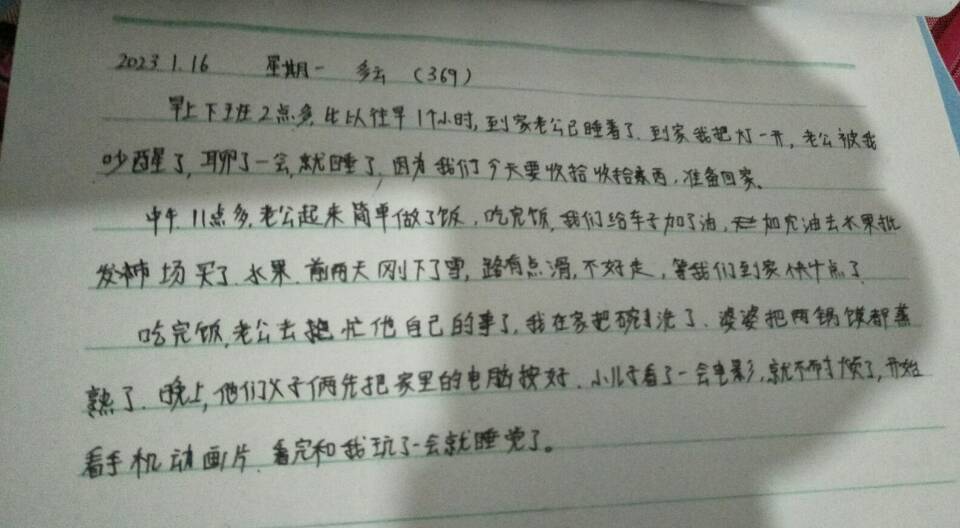 2023.1.16 星期一 多云 (369)
早上下班2点多,比以往早1个小时,到家老公已睡着了.到家我把灯一开,老公被我
吵醒了,聊了一会,就睡了,因为我们今天要收拾收拾东西,准备回家.
中午11点多,老公起来简单做了饭,吃完饭,我们给车子加了油,加完油去水果批
发市场买了水果.前两天刚下了雪,路有点滑,不好走,等我们到家快十点了
吃完饭,老公去忙他自己的事了,我在家把碗洗了.婆婆把两锅馍都蒸
熟了.晚上,他们父子俩先把家里的电脑按好.小儿子看了一会电影,就不耐烦了,开始
看手机动画片.看完和我玩了一会就睡觉了。